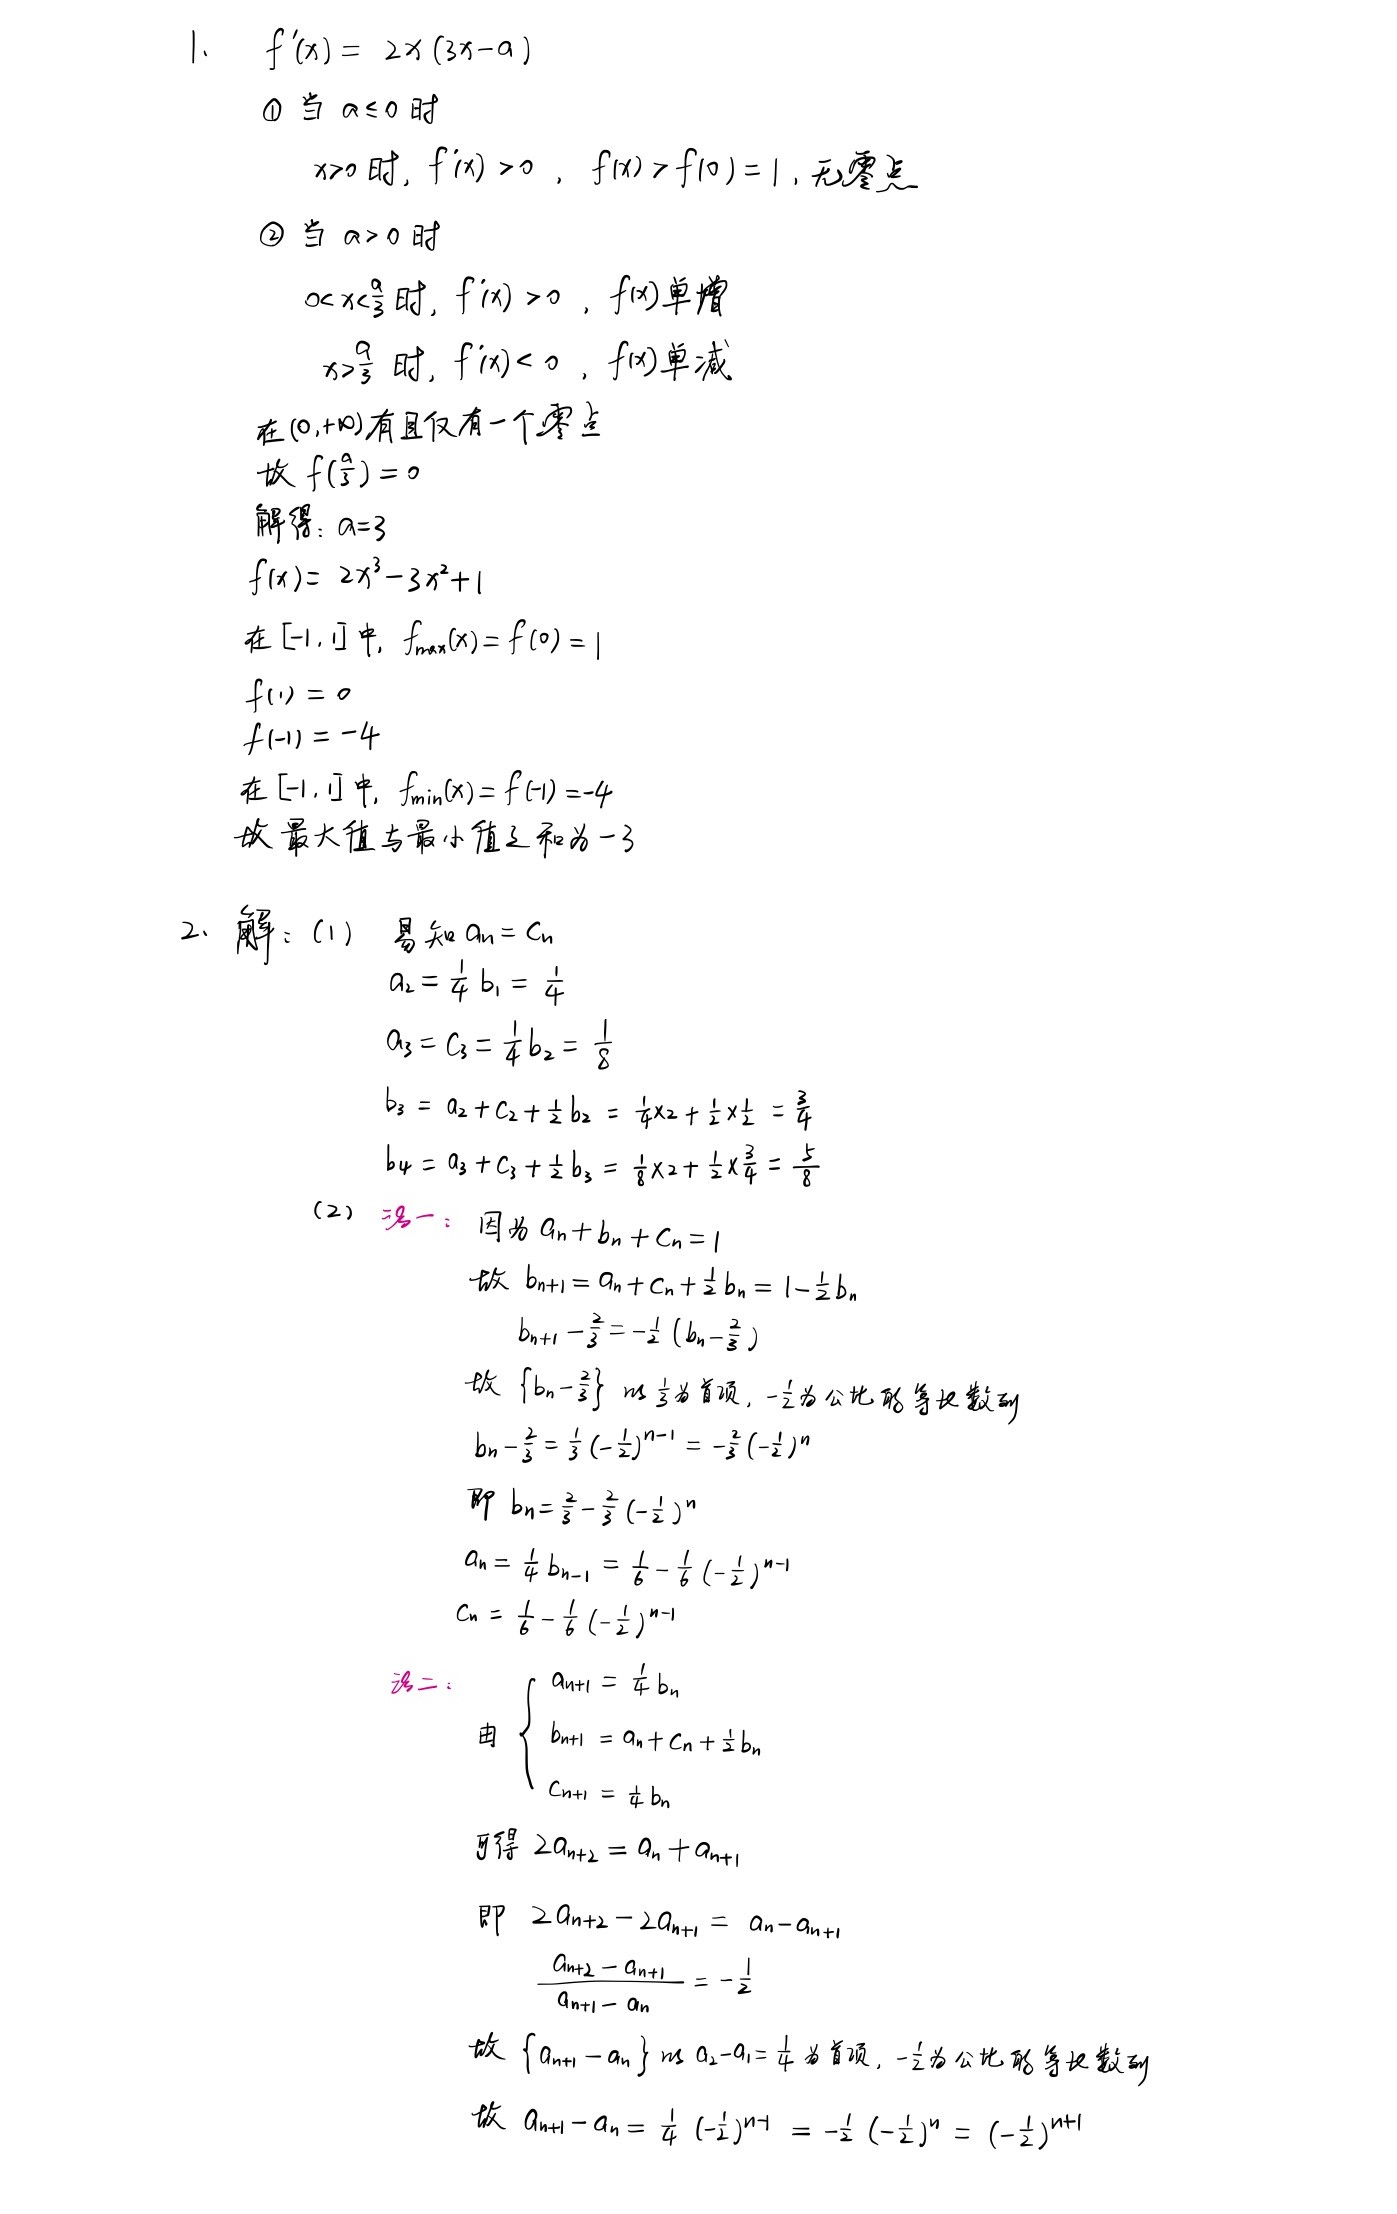 1. f'(x) = 2x(3x-a)
① 当 a≤0 时
x>0 时, f'(x)>0 , f(x)>f(0)=1, 无零点
② 当 a>0 时
0<x<a/3 时, f'(x)>0 , f(x)单增
x>a/3 时, f'(x)<0 , f(x)单减
在(0,+∞)有且仅有一个零点
故 f(a/3)=0
解得: a=3
f(x)= 2x³-3x²+1
在[-1,1]中, fmax(x)=f(0)=1
f(1)=0
f(-1)=-4
在[-1,1]中, fmin(x)=f(-1)=-4
故最大值与最小值之和为-3
2. 解: (1) 易知 aₙ=cₙ
a₂=1/4 b₁=1/4
a₃=c₃=1/4 b₂=1/8
b₃=a₂+c₂+1/2 b₂=1/4×2+1/2×1/2=3/4
b₄=a₃+c₃+1/2 b₃=1/8×2+1/2×3/4=5/8
(2) 法一: 因为 aₙ+bₙ+cₙ=1
故 bₙ₊₁=aₙ+cₙ+1/2 bₙ=1-1/2 bₙ
bₙ₊₁-2/3=-1/2(bₙ-2/3)
故 {bₙ-2/3} 以 1/3 为首项, -1/2 为公比的等比数列
bₙ-2/3=1/3(-1/2)ⁿ⁻¹=-2/3(-1/2)ⁿ
即 bₙ=2/3-2/3(-1/2)ⁿ
aₙ=1/4 bₙ₋₁=1/6-1/6(-1/2)ⁿ⁻¹
cₙ=1/6-1/6(-1/2)ⁿ⁻¹
法二:
由 { aₙ₊₁=1/4 bₙ
bₙ₊₁=aₙ+cₙ+1/2 bₙ
cₙ₊₁=1/4 bₙ
可得 2aₙ₊₂=aₙ+aₙ₊₁
即 2aₙ₊₂-2aₙ₊₁=aₙ-aₙ₊₁
(aₙ₊₂-aₙ₊₁)/(aₙ₊₁-aₙ)=-1/2
故 {aₙ₊₁-aₙ} 以 a₂-a₁=1/4 为首项, -1/2 为公比的等比数列
故 aₙ₊₁-aₙ=1/4(-1/2)ⁿ⁻¹=-1/2(-1/2)ⁿ=(-1/2)ⁿ⁺¹